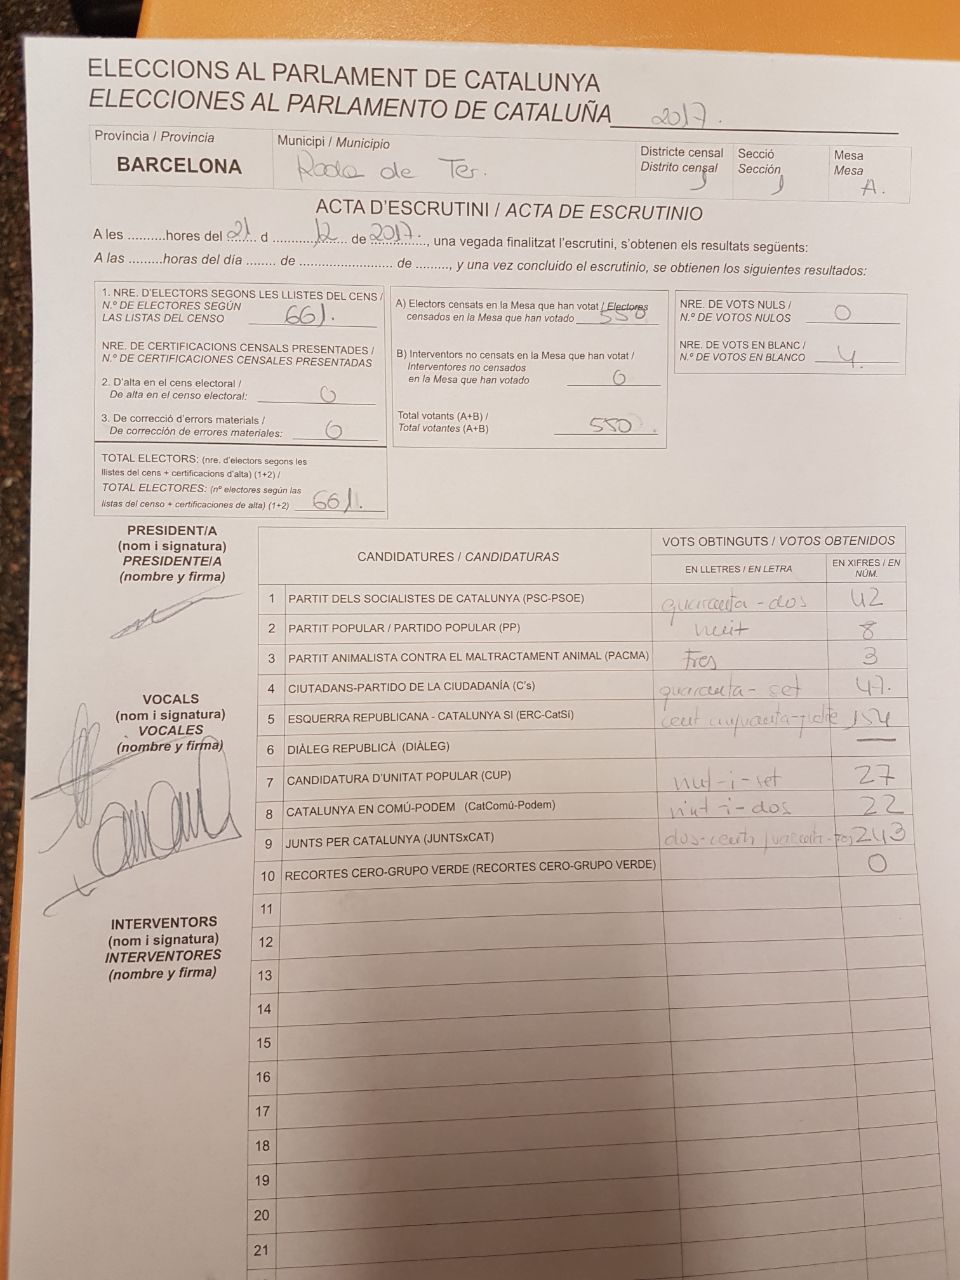 ELECCIONS AL PARLAMENT DE CATALUNYA
ELECCIONES AL PARLAMENTO DE CATALUÑA 2017.
Provincia / Provincia
BARCELONA
Municipi / Municipio
Roda de Ter.
Districte censal
Distrito censal
1
Secció
Sección
1
Mesa
Mesa
A.
ACTA D'ESCRUTINI / ACTA DE ESCRUTINIO
A les ..........hores del 21 d 12 de 2017, una vegada finalitzat l'escrutini, s'obtenen els resultats següents:
A las .........horas del día ........ de ......................... de ........., y una vez concluido el escrutinio, se obtienen los siguientes resultados:
1. NRE. D'ELECTORS SEGONS LES LLISTES DEL CENS /
N.º DE ELECTORES SEGÚN
LAS LISTAS DEL CENSO 661.
NRE. DE CERTIFICACIONS CENSALS PRESENTADES /
N.º DE CERTIFICACIONES CENSALES PRESENTADAS
2. D'alta en el cens electoral /
De alta en el censo electoral: 0
3. De correcció d'errors materials /
De corrección de errores materiales: 0
TOTAL ELECTORS: (nre. d'electors segons les
llistes del cens + certificacions d'alta) (1+2) /
TOTAL ELECTORES: (nº electores según las
listas del censo + certificaciones de alta) (1+2) 661.
A) Electors censats en la Mesa que han votat / Electores
censados en la Mesa que han votado 550
B) Interventors no censats en la Mesa que han votat /
Interventores no censados
en la Mesa que han votado 0
Total votants (A+B) /
Total votantes (A+B) 550.
NRE. DE VOTS NULS /
N.º DE VOTOS NULOS 0
NRE. DE VOTS EN BLANC /
N.º DE VOTOS EN BLANCO 4.
PRESIDENT/A
(nom i signatura)
PRESIDENTE/A
(nombre y firma)
VOCALS
(nom i signatura)
VOCALES
(nombre y firma)
INTERVENTORS
(nom i signatura)
INTERVENTORES
(nombre y firma)
CANDIDATURES / CANDIDATURAS
VOTS OBTINGUTS / VOTOS OBTENIDOS
EN LLETRES / EN LETRA
EN XIFRES / EN
NÚM.
1 PARTIT DELS SOCIALISTES DE CATALUNYA (PSC-PSOE) quaranta-dos 42
2 PARTIT POPULAR / PARTIDO POPULAR (PP) vuit 8
3 PARTIT ANIMALISTA CONTRA EL MALTRACTAMENT ANIMAL (PACMA) tres 3
4 CIUTADANS-PARTIDO DE LA CIUDADANÍA (C's) quaranta-set 47.
5 ESQUERRA REPUBLICANA - CATALUNYA SI (ERC-CatSí) cent 154
6 DIÀLEG REPUBLICÀ (DIÀLEG) —
7 CANDIDATURA D'UNITAT POPULAR (CUP) vint-i-set 27
8 CATALUNYA EN COMÚ-PODEM (CatComú-Podem) vint-i-dos 22
9 JUNTS PER CATALUNYA (JUNTSxCAT) dos-cents 243
10 RECORTES CERO-GRUPO VERDE (RECORTES CERO-GRUPO VERDE) 0
11
12
13
14
15
16
17
18
19
20
21